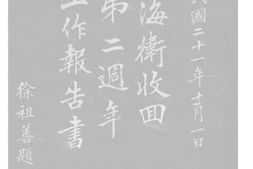 民國二十一年十月一日
海衛收回
第二週年
工作報告書
徐祖善題